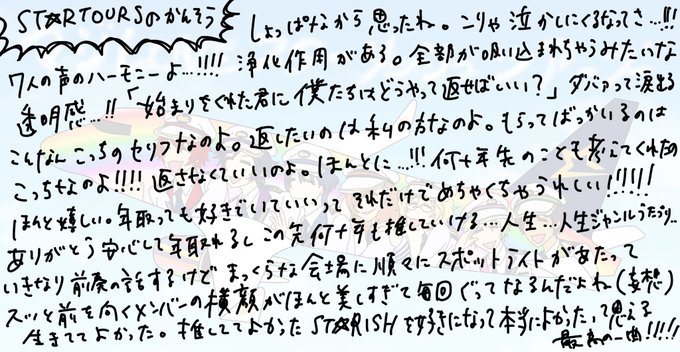 ST☆RTOURSのかんそう
しょっぱなから思ったね。こりゃ泣かしにくるなってさ…!!!
7人の声のハーモニーよ…!!!! 浄化作用がある。全部が吸い込まれちゃうみたいな
透明感…!!「始まりをくれた君に僕たちはどうやって返せばいい?」ダバァって涙出る
こんなんこっちのセリフなのよ。返したいのは私の方なのよ。もらってばっかいるのは
こっちなのよ!!!! 返さなくていいのよ。ほんとに…!!! 何十年先のことも考えてくれたの
ほんと嬉しい。年取っても好きでいていいって それだけでめちゃくちゃうれしい!!!!!
ありがとう 安心して年取れるし この先何十年も推していける…人生…人生ジャンルうたプリ…
いきなり前奏の話するけど まっくらな会場に順々にスポットライトがあたって
スッと前を向くメンバーの横顔がほんと美しすぎて毎回ぐってなるんだよね(妄想)
生きててよかった。推しててよかった ST☆RISHを好きになって本当によかったって思える
最高の一曲!!!!